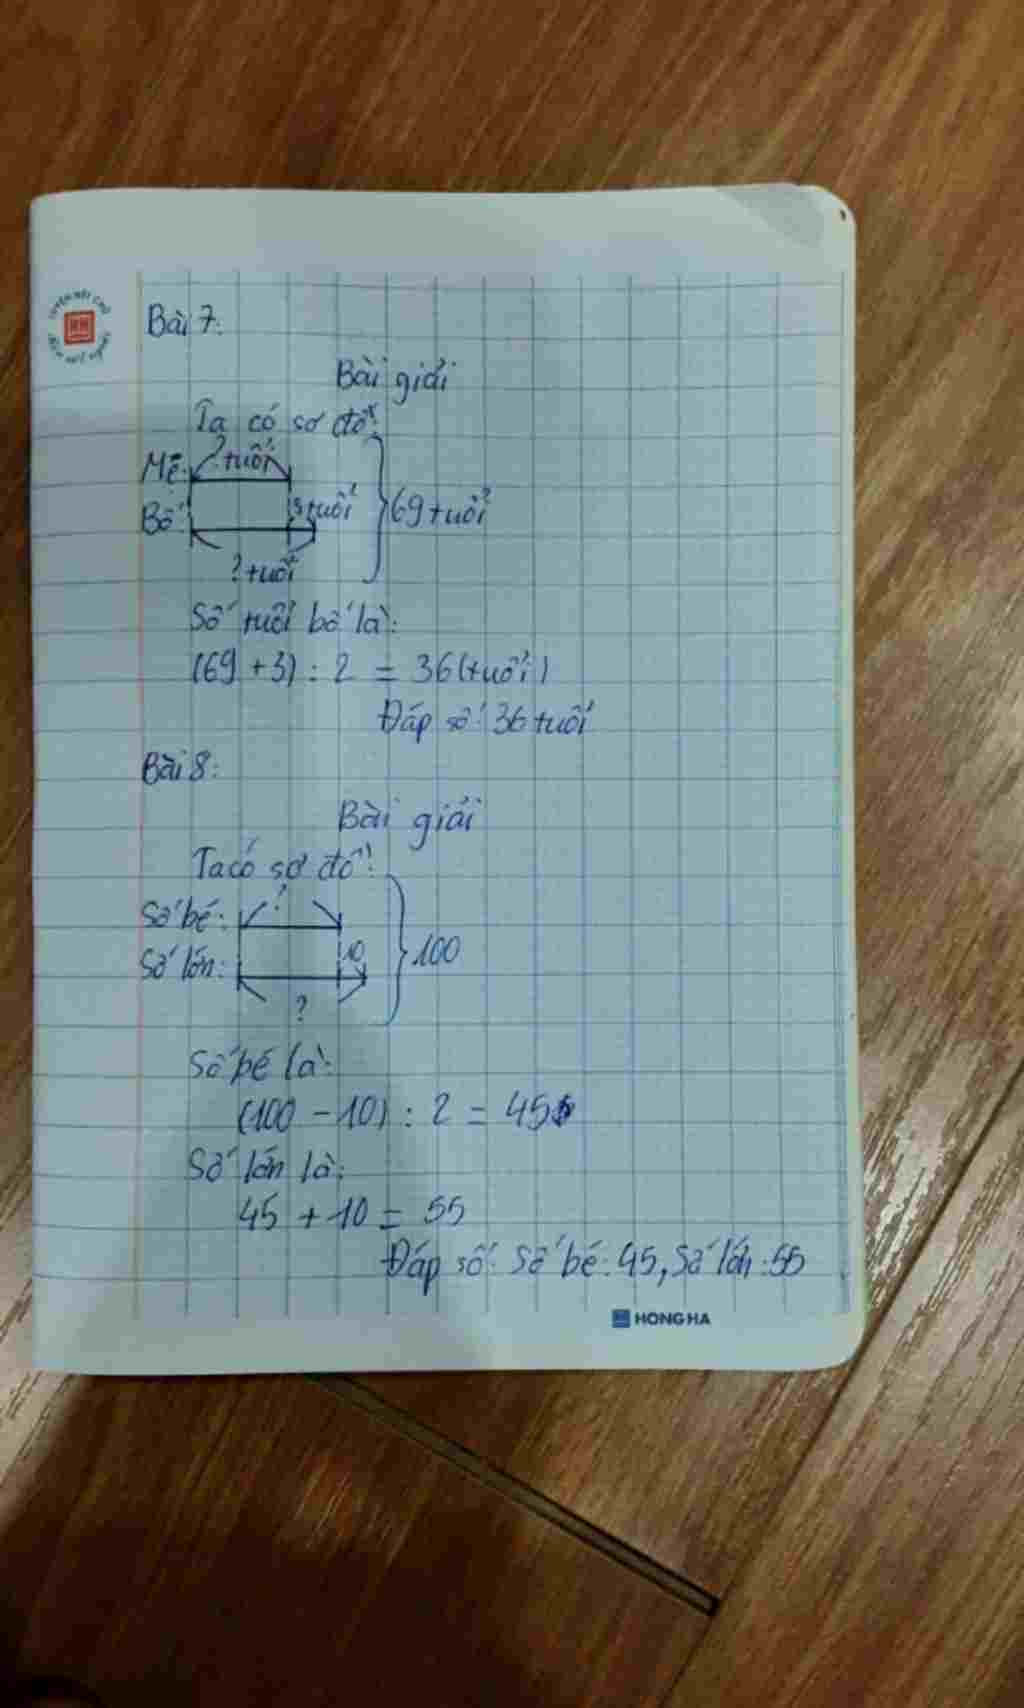 Bài 7:
Bài giải
Ta có sơ đồ:
? tuổi
Mẹ:
Bố:
3 tuổi
69 tuổi
? tuổi
Số tuổi bố là:
(69 + 3) : 2 = 36 (tuổi)
Đáp số: 36 tuổi
Bài 8:
Bài giải
Ta có sơ đồ:
?
Số bé:
Số lớn:
10
100
?
Số bé là:
(100 - 10) : 2 = 45
Số lớn là:
45 + 10 = 55
Đáp số: Số bé: 45, Số lớn: 55
HONG HA